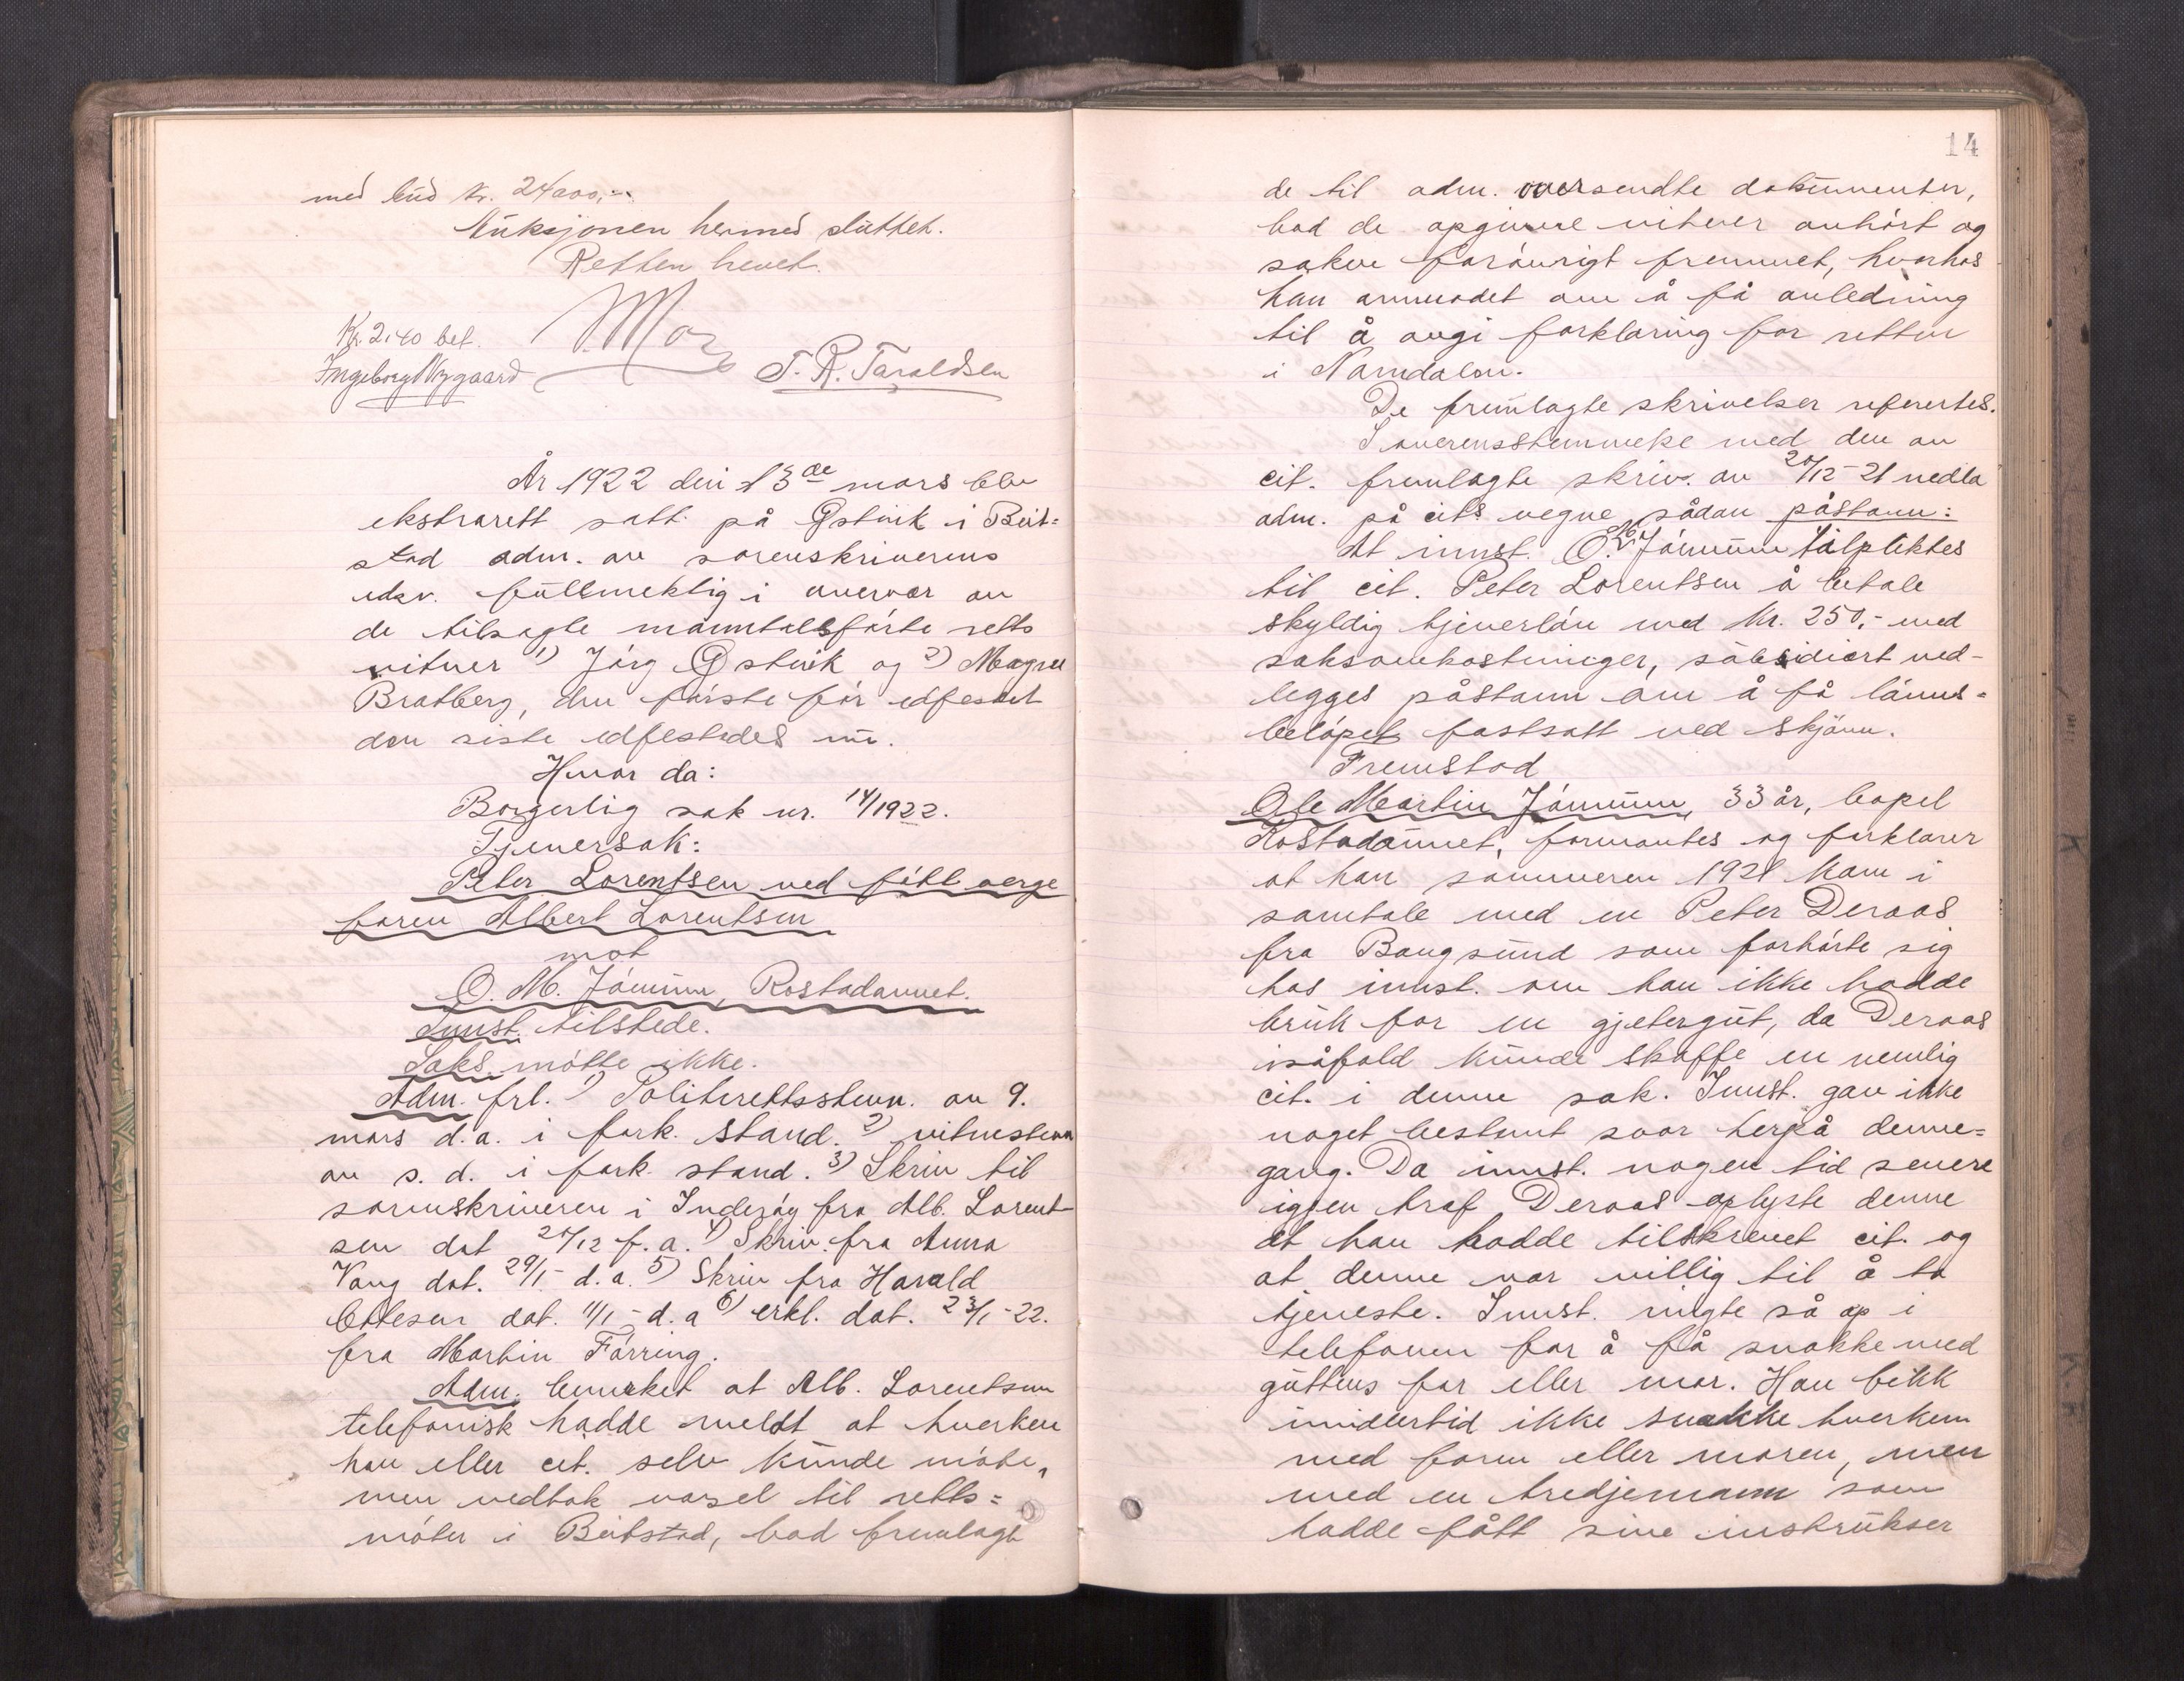 med bud kr. 24000,-.
Auksjonen hermed sluttet.
Retten hevet.
Kr. 2.40 bet.
Ingeborg Nygaard
T. R. Taraldsen
År 1922 den 13de mars blev
ekstrarett satt på Østvik i Beit=
stad adm. av sorenskriverens
edsv. fullmektig i overvær av
de tilsagte manntallsførte retts
vitner 1) Jørg Østvik og 2) Magne
Bratberg, den første før edfestet
den siste edfestedes nu.
Hvor da:
Borgerlig sak nr. 14/1922.
Tjenersak:
Peter Lorentsen ved født verge
faren Albert Lorentsen
mot
O. M. Jámun, Rostadannet.
Innst. tilstede.
Saks. møtte ikke.
Adm. frl. 1) Politirettsstevn. av 9.
mars d.a. i fork. stand. 2) vitnestevn
av s. d. i fork. stand. 3) Skriv til
sorenskriveren i Inderøy fra Alb. Lorent-
sen dat 20/12 f. a. 4) Skriv. fra Anna
Vang dat. 29/1- d.a. 5) Skriv fra Harald
dat. 11/1- d.a 6) erkl. dat. 23/1-22.
fra Martin Førring.
Adm. bemerket at Alb. Lorentsen
telefonisk hadde meldt at hverken
han eller cit. selv kunde møte,
men vedtok varsel til retts=
møter i Beitstad, bad fremlagt
14
de til adm. oversendte dokumenter,
bad de opgivne vitner avhørt og
saken forøvrigt fremmet, hvorhos
han anmodet om å få anledning
til å avgi forklaring for retten
i Namdalen.
De fremlagte skrivelser refertes.
I overensstemmelse med den av
cit. fremlagte skriv. av 20/12-21 nedla
adm. på cits vegne sådan påstann:
At innst. O. M. Jámun tilpliktes
til cit. Peter Lorentsen å betale
skyldig tjenerløn med kr. 250,- med
saksomkostninger, subsidiært ned-
legges påstann om å få lønns=
beløpet fastsatt ved skjønn.
Fremstod
Ole Martin Jámun, 33 år, bopel
Rostadannet, formantes og forklarer
at han sommeren 1921 kom i
samtale med en Peter Deraas
fra Bangsund som forhørte sig
hos innst. om han ikke hadde
bruk for en gjetergut, da Deraas
isåfald kunde skaffe en nemlig
cit. i denne sak. Innst. gav ikke
noget bestemt svar herpå denne=
gang. Da innst. nogen tid senere
igjen traf Deraas oplyste denne
at han hadde tilskrevet cit. og
at denne var villig til å ta
tjeneste. Innst. ringte så op i
telefonen for å få snakke med
guttens far eller mor. Han fikk
imidlertid ikke snakke hverken
med faren eller moren, men
med en tredjemann som
hadde fått sine instrukser